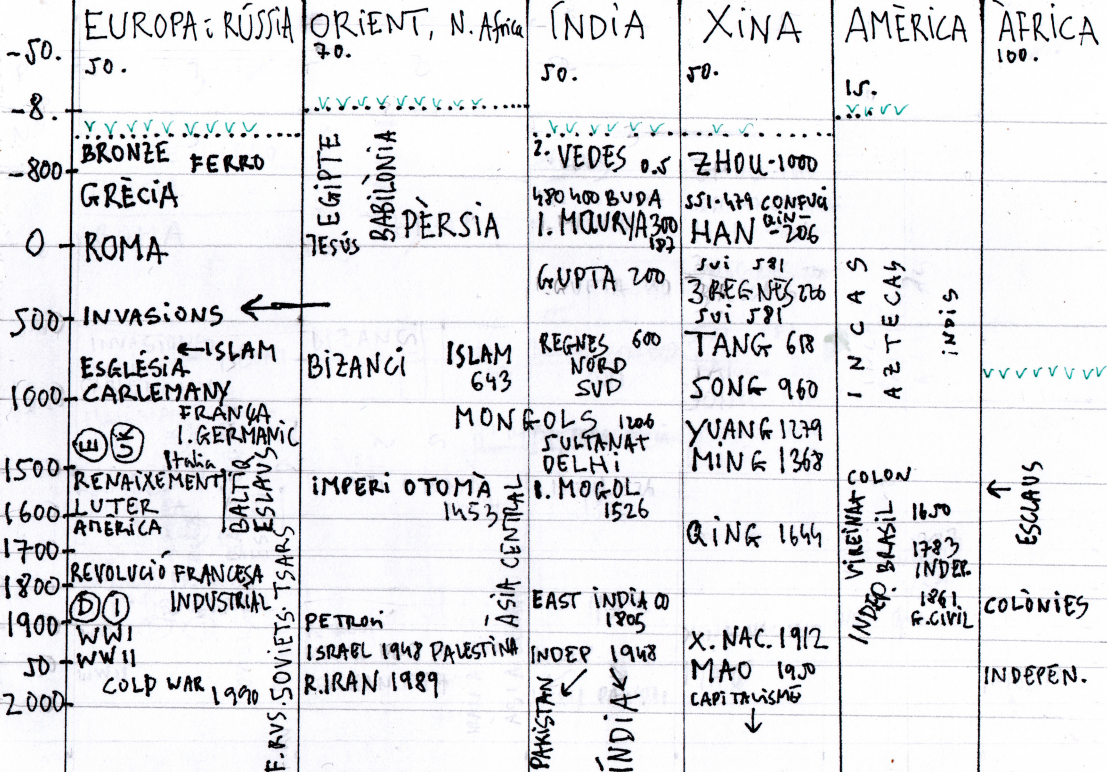 EUROPA i RÚSSIA
50.
BRONZE FERRO
GRÈCIA
ROMA
INVASIONS
ISLAM
ESGLÉSIA
CARLEMANY
FRANÇA
I. GERMANIC
E UK
Italia
BALTIQ
ESLAUS
RENAIXEMENT
LUTER
AMÈRICA
REVOLUCIÓ FRANCESA
INDUSTRIAL
D I
WWI
WWII
COLD WAR 1990
E. RUS. SOVIETS. TSARS
-50.
-8.
-800
0
500
1000
1500
1600
1700
1800
1900
50
2000
ORIENT, N. Africa
70.
EGIPTE
BABILÒNIA
PÈRSIA
JESÚS
BIZANCI
ISLAM
643
MONGOLS 1206
IMPERI OTOMÀ
1453
ASIA CENTRAL
PETROLI
ISRAEL 1948 PALESTINA
R. IRAN 1989
ÍNDIA
50.
2. VEDES 0.5
480 400 BUDA
I. MAURYA 300
187
GUPTA 200
REGNES 600
NORD
SUD
SULTANAT
DELHI
I. MOGOL
1526
EAST INDIA CO
1805
INDEP 1948
PAKISTAN
ÍNDIA
XINA
50.
ZHOU-1000
551-479 CONFUCI
QIN-
HAN -206
SUI 581
3 REGNES 220
SUI 581
TANG 618
SONG 960
YUANG 1279
MING 1368
QING 1644
X. NAC. 1912
MAO 1950
CAPITALISME
AMÈRICA
15.
INCAS
AZTECAS
INDIS
COLON
VIREINAT
BRASIL
INDEP.
1650
1783
INDEP.
1861
G. CIVIL
ÀFRICA
100.
ESCLAUS
COLÒNIES
INDEPEN.